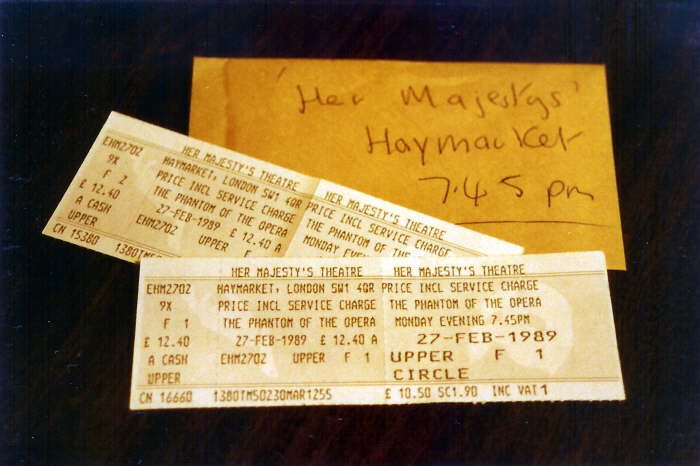 'Her Majestys'
Haymarket
7.45 pm
HER MAJESTY'S THEATRE HER MAJESTY'S THEATRE
EHM2702 HAYMARKET, LONDON SW1 4QR PRICE INCL SERVICE CHARGE
9X PRICE INCL SERVICE CHARGE THE PHANTOM OF THE
F 2 THE PHANTOM OF THE OPERA MONDAY EVENING
£ 12.40 27-FEB-1989 £ 12.40 A
A CASH EHM2702 UPPER F
UPPER
CN 15380 1380TM
HER MAJESTY'S THEATRE HER MAJESTY'S THEATRE
EHM2702 HAYMARKET, LONDON SW1 4QR PRICE INCL SERVICE CHARGE
9X PRICE INCL SERVICE CHARGE THE PHANTOM OF THE OPERA
F 1 THE PHANTOM OF THE OPERA MONDAY EVENING 7.45PM
£ 12.40 27-FEB-1989 £ 12.40 A 27-FEB-1989
A CASH EHM2702 UPPER F 1 UPPER F 1
UPPER CIRCLE
CN 16660 1380TM50230MAR1255 £ 10.50 SC1.90 INC VAT1